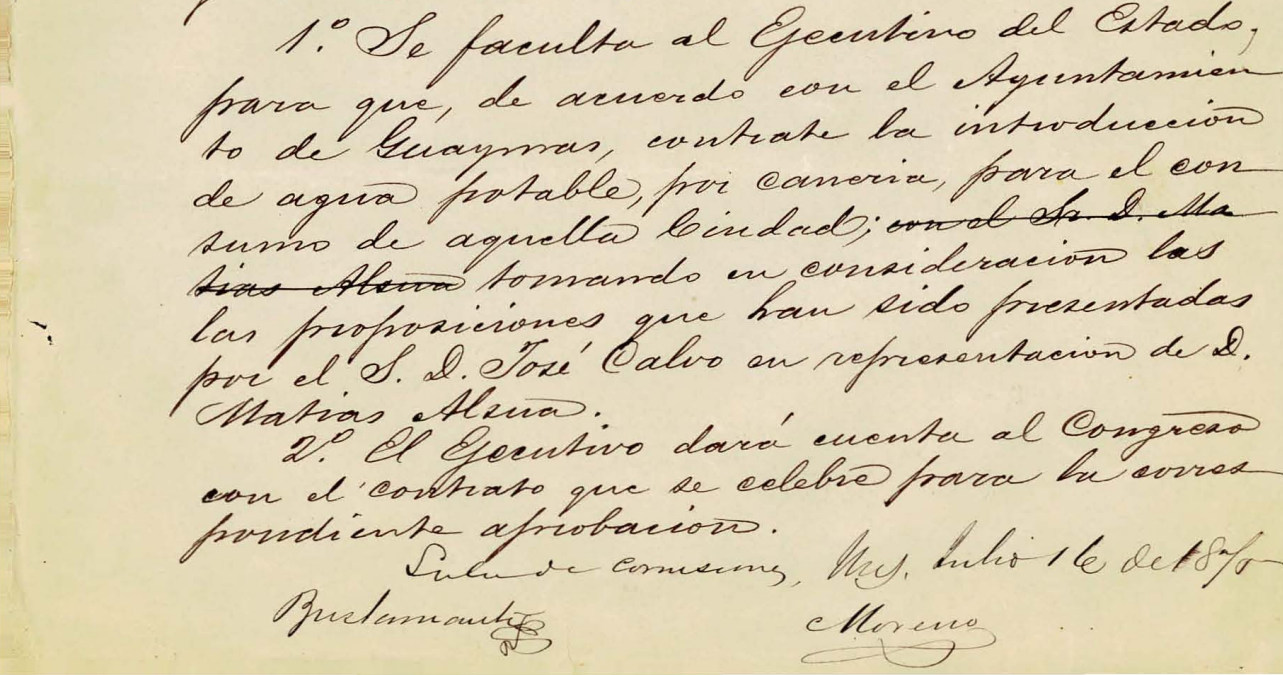 1.º Se faculta al Ejecutivo del Estado,
para que, de acuerdo con el Ayuntamien
to de Guaymas, contrate la introduccion
de agua potable, por cañeria, para el con
sumo de aquella Ciudad; con el Sr. D. Ma
tias Alsua tomando en consideracion las
las proposiciones que han sido presentadas
por el S. D. José Calvo en representacion de D.
Matias Alsua.
2.º El Ejecutivo dará cuenta al Congreso
con el contrato que se celebre para la corres
pondiente aprobacion.
Sala de comisiones, Julio 16 de
Bustamante Moreno